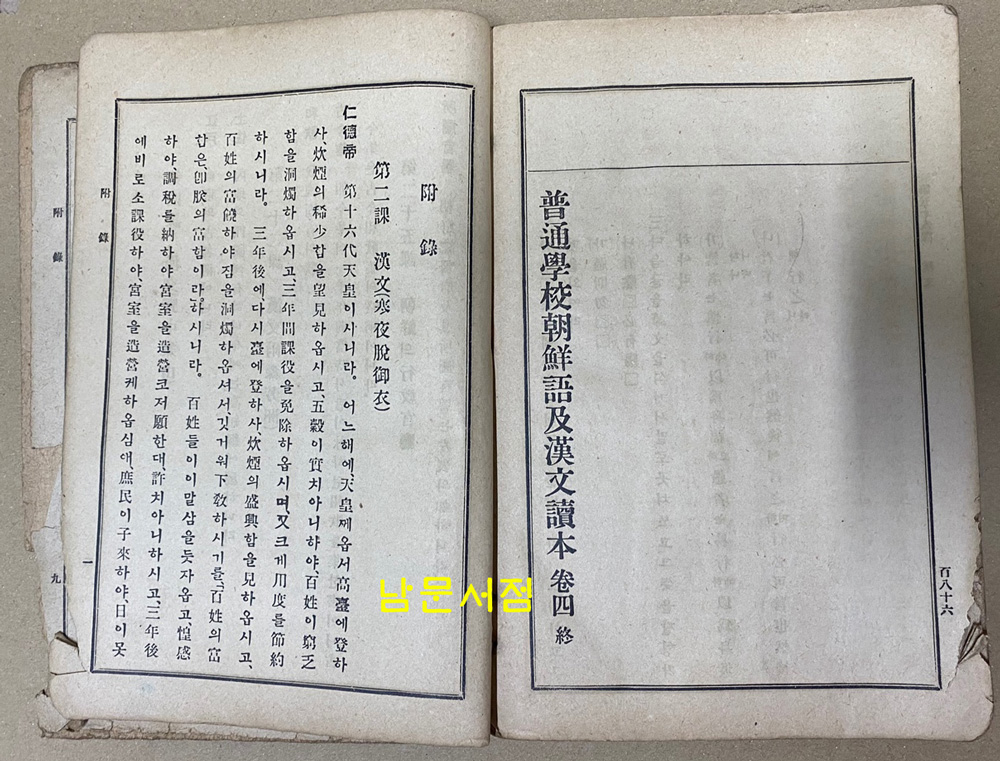 普通學校朝鮮語及漢文讀本 卷四 終
百八十六
附錄
第二課 漢文(寒夜脫御衣)
仁德帝 第十六代天皇이시니라. 어느해에, 天皇께옵서 高臺에登하
사, 炊煙의稀少함을望見하옵시고, 五穀이實치아니하야, 百姓이窮乏
함을洞燭하옵시고, 三年間課役을免除하옵시며, 又크게用度를節約
하시니라. 三年後에, 다시臺에登하사, 炊煙의盛興함을見하옵시고,
百姓의富饒하야짐을洞燭하옵셔서, 깃거워下敎하시기를, 百姓의富
함은, 卽朕의富함이라, 하시니라. 百姓들이이말삼을듯자옵고, 惶感
하야, 調稅를納하야宮室을造營코저願한대, 許치아니하시고, 三年後
에비로소課役하야, 宮室을造營케하옵심애, 庶民이子來하야, 日이못
附錄
一
附錄
九
남문서점